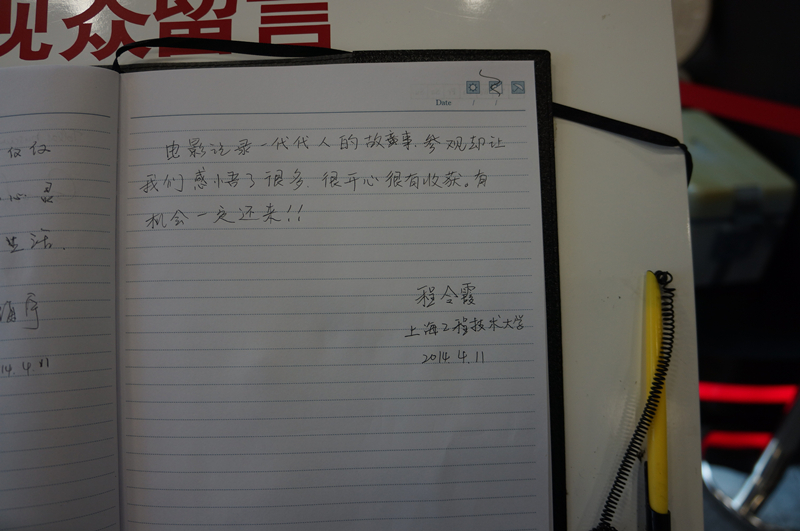 观众留言
仅仅
心灵
生活.
14.4.11
Date / /
电影记录一代代人的故事,参观却让
我们感悟了很多,很开心很有收获。有
机会一定还来!!
程合霞
上海工程技术大学
2014.4.11